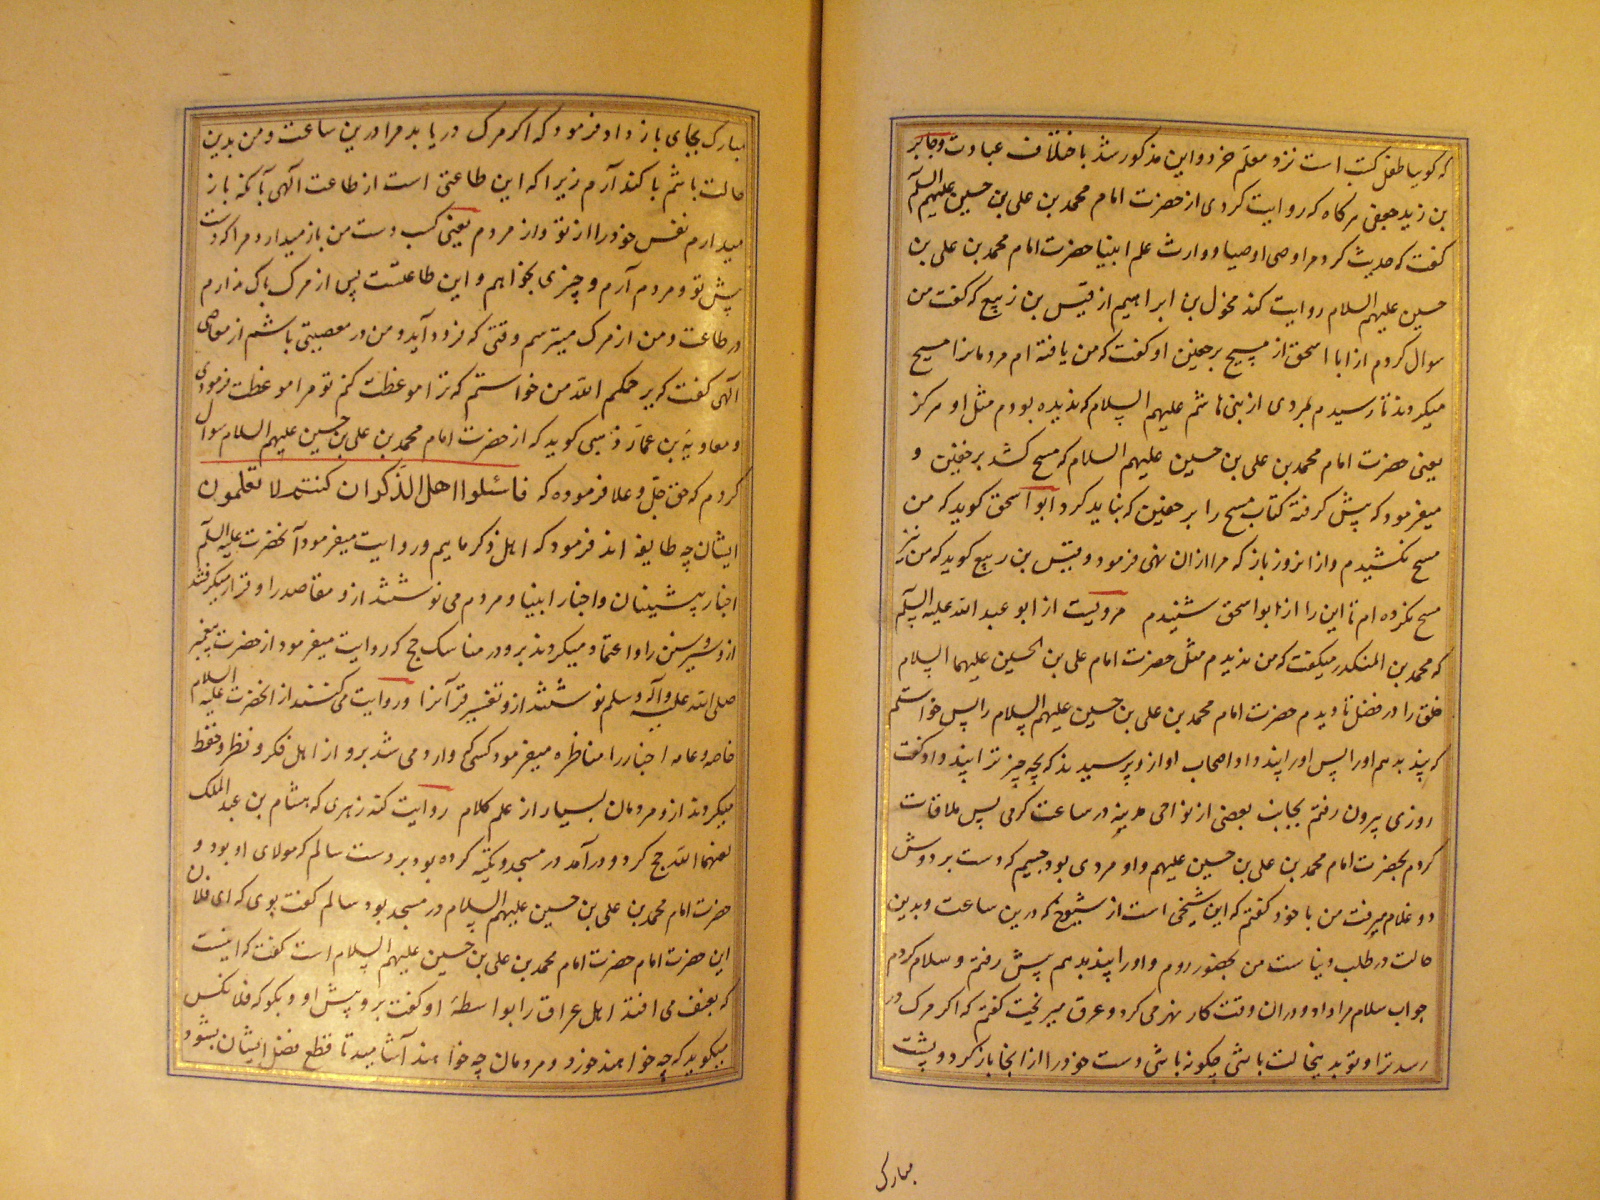 که گویا طفل کتب است نزد معلم خرد و این مذکور شد باختلاف عبادت و جابر
بن زید جعفی هرگاه که روایت کردی از حضرت امام محمد بن علی بن حسین علیهم السلام
گفت که حدیث کرد مرا وصی اوصیا و وارث علم انبیا حضرت امام محمد بن علی بن
حسین علیهم السلام روایت کند مخول بن ابراهیم از قیس بن ربیع که گفت من
سوال کردم از ابا اسحق از مسح بر خفین او گفت که من یافته ام مردمانرا مسح
میکردند تا رسیدم بمردی از بنی هاشم علیهم السلام که ندیده بودم مثل او هرگز
یعنی حضرت امام محمد بن علی بن حسین علیهم السلام که مسح کشد بر خفین و
میفرمود که پیش گرفته کتاب مسح را بر خفین که نباید کرد ابو اسحق گوید که من
مسح نکشیدم و از انروز باز که مرا ازان نهی فرمود و قیس بن ربیع گوید که من نیز
مسح نکرده ام تا این را از ابو اسحق شنیدم مرویست از ابو عبد الله علیه السلام
که محمد بن المنکدر میگفت که من ندیدم مثل حضرت امام علی بن الحسین علیهما السلام
خلق را در فضل تا دیدم حضرت امام محمد بن علی بن حسین علیهم السلام را پس خواستم
که پند بدهم اورا پس اورا پند داد اصحاب او ازو پرسیدند که بچه چیز ترا پند داد گفت
روزی بیرون رفتم بجانب بعضی از نواحی مدینه در ساعت گرمی پس ملاقات
کردم بحضرت امام محمد بن علی بن حسین علیهم و او مردی بود جسیم که دست بر دوش
دو غلام میرفت من با خود گفتم که این شیخی است از شیوخ که درین ساعت و بدین
حالت در طلب دنیاست من بحضور روم و اورا پند بدهم پیش رفتم و سلام کردم
جواب سلام مرا داد و دران وقت کار نهر می کرد و عرق میریخت گفتم که اگر مرگ در
رسد ترا و تو بدینحالت باشی چگونه باشی دست خود را از انجا باز کرد و پشت
مبارک
مبارک بجای باز داد فرمود که اگر مرگ دریابد مرا درین ساعت و من بدین
حالت باشم باکند آرم زیرا که این طاعتی است از طاعت الهی آنکه باز
میدارم نفس خود را از تو و از مردم یعنی کسب دست من باز میدارد مرا که دست
پیش تو و مردم آرم و چیزی بخواهم و این طاعتست پس از مرگ باک ندارم
در طاعت و من از مرگ میترسم وقتی که فرود آید و من در معصیتی باشم از معاصی
الهی گفت که یرحمکم الله من خواستم که ترا موعظت کنم تو مرا موعظت فرمودی
و معاویه بن عمار ذهبی گوید که از حضرت امام محمد بن علی بن حسین علیهم السلام سوال
کردم که حق جل و علا فرموده که فاسئلوا اهل الذکر ان کنتم لا تعلمون
ایشان چه طایفه اند فرمود که اهل ذکر ماییم و روایت میفرمود آنحضرت علیه السلام
اخبار پیشینان و اخبار انبیا و مردم می نوشتند ازو مقاصد را و قرار میگرفتند
ازو سیر و سنن را و اعتماد میکردند برو در مناسک حج که روایت میفرمود از حضرت پیغمبر
صلی الله علیه و آله و سلم نوشتند ازو تفسیر قرآنرا و روایت می کنند از انحضرت علیه السلام
خاصه و عامه اخبار را مناظره میفرمود کسی که وارد می شد برو از اهل فکر و نظر و حفظ
میکردند ازو مردمان بسیار از علم کلام روایت کند زهری که هشام بن عبد الملک
لعنهما الله حج کرد و در آمد در مسجد و تکیه کرده بود بر دست سالم که مولای او بود و
حضرت امام محمد بن علی بن حسین علیهم السلام در مسجد بود سالم گفت بوی که ای فلان
این حضرت امام حضرت امام محمد بن علی بن حسین علیهم السلام است گفت که اینست
که بعنف می افتد اهل عراق را بواسطهٔ او گفت برو پیش او و بگو که فلانکس
میگوید که چه خواهند خورد و مردمان چه خواهند آشامید تا قطع فصل ایشان بشود